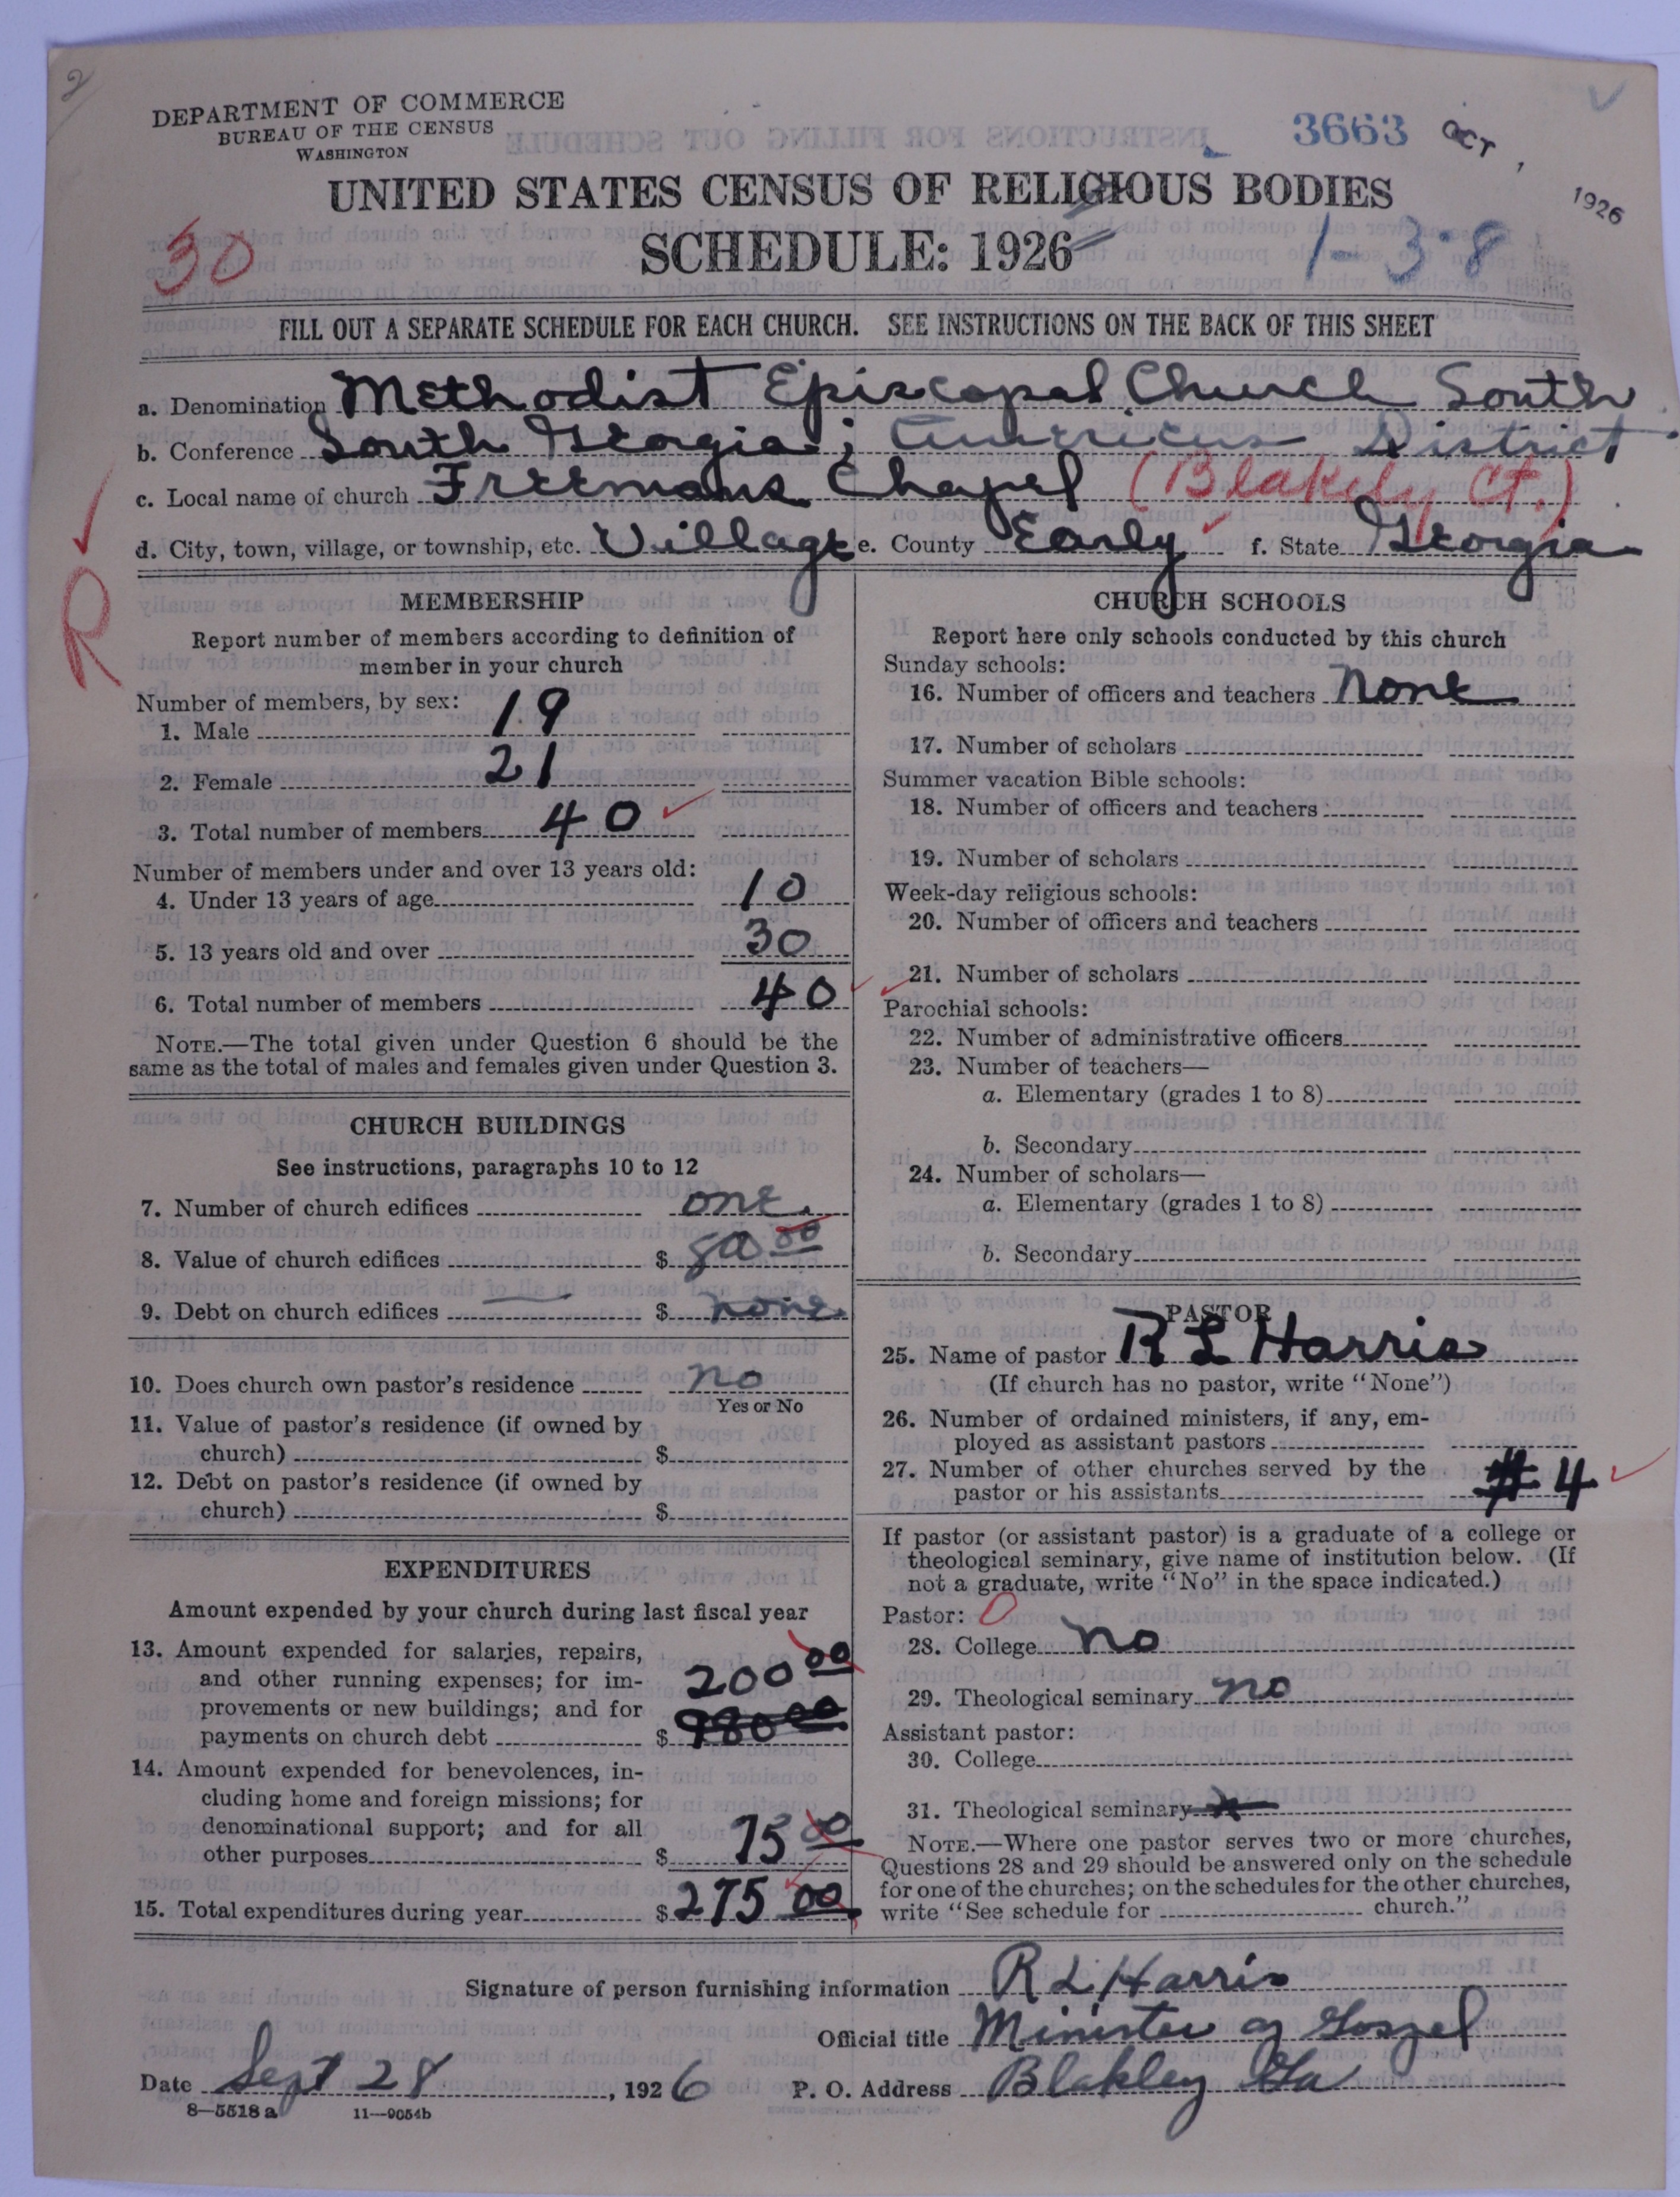 2
DEPARTMENT OF COMMERCE
BUREAU OF THE CENSUS
WASHINGTON
3663
OCT 1 1926
UNITED STATES CENSUS OF RELIGIOUS BODIES
SCHEDULE: 1926
30
1-3-8
FILL OUT A SEPARATE SCHEDULE FOR EACH CHURCH. SEE INSTRUCTIONS ON THE BACK OF THIS SHEET
a. Denomination Methodist Episcopal Church South
b. Conference South Georgia; Americus District
c. Local name of church Freemans Chapel (Blakely Ct.)
d. City, town, village, or township, etc. Village e. County Early f. State Georgia
R
MEMBERSHIP
Report number of members according to definition of
member in your church
Number of members, by sex:
1. Male 19
2. Female 21
3. Total number of members 40
Number of members under and over 13 years old:
4. Under 13 years of age 10
5. 13 years old and over 30
6. Total number of members 40
NOTE.—The total given under Question 6 should be the
same as the total of males and females given under Question 3.
CHURCH BUILDINGS
See instructions, paragraphs 10 to 12
7. Number of church edifices one
8. Value of church edifices $
9. Debt on church edifices $ none
10. Does church own pastor's residence no
Yes or No
11. Value of pastor's residence (if owned by
church) $
12. Debt on pastor's residence (if owned by
church) $
EXPENDITURES
Amount expended by your church during last fiscal year
13. Amount expended for salaries, repairs,
and other running expenses; for im-
provements or new buildings; and for
payments on church debt $ 200 00
980 00
14. Amount expended for benevolences, in-
cluding home and foreign missions; for
denominational support; and for all
other purposes $ 75 00
15. Total expenditures during year $ 275 00
CHURCH SCHOOLS
Report here only schools conducted by this church
Sunday schools:
16. Number of officers and teachers None
17. Number of scholars
Summer vacation Bible schools:
18. Number of officers and teachers
19. Number of scholars
Week-day religious schools:
20. Number of officers and teachers
21. Number of scholars
Parochial schools:
22. Number of administrative officers
23. Number of teachers—
a. Elementary (grades 1 to 8)
b. Secondary
24. Number of scholars—
a. Elementary (grades 1 to 8)
b. Secondary
PASTOR
25. Name of pastor R L Harris
(If church has no pastor, write "None")
26. Number of ordained ministers, if any, em-
ployed as assistant pastors
27. Number of other churches served by the
pastor or his assistants # 4
If pastor (or assistant pastor) is a graduate of a college or
theological seminary, give name of institution below. (If
not a graduate, write "No" in the space indicated.)
Pastor: 0
28. College no
29. Theological seminary no
Assistant pastor:
30. College
31. Theological seminary
NOTE.—Where one pastor serves two or more churches,
Questions 28 and 29 should be answered only on the schedule
for one of the churches; on the schedules for the other churches,
write "See schedule for church."
Signature of person furnishing information R L Harris
Official title Minister of Gospel
Date Sept 28, 1926 P. O. Address Blakley Ga
8—5518 a 11—9054b